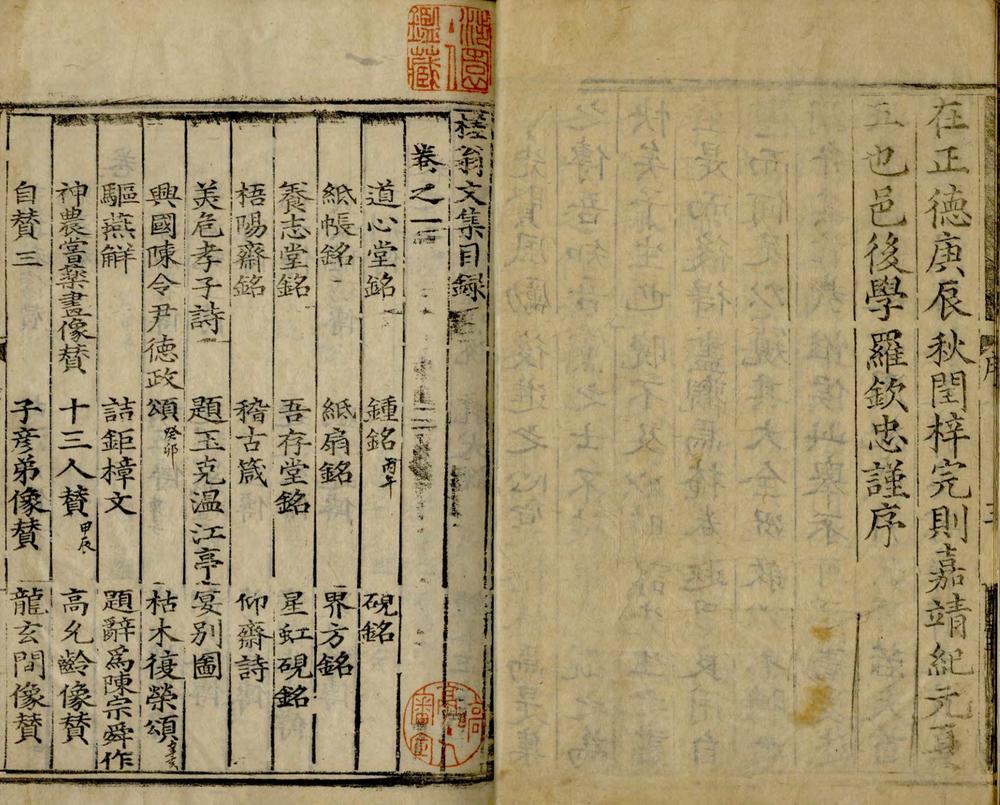 在正德庚辰秋閏梓完則嘉靖紀元夏
五也邑後學羅欽忠謹序
翁文集目錄
卷之一
道心堂銘 鍾銘丙午 硯銘
紙帳銘 紙扇銘 界方銘
養志堂銘 吾存堂銘 星虹硯銘
梧陽齋銘 稽古箴 仰齋詩
美危孝子詩 題玉克溫江亭宴別圖
興國陳令尹德政頌癸卯 枯木復榮頌辛亥
驅燕觧 詰鉅樟文 題辭爲陳宗舜作
神農嘗藥畫像賛 十三人賛甲辰 高允齡像賛
自賛三 子彥弟像賛 龍玄間像賛